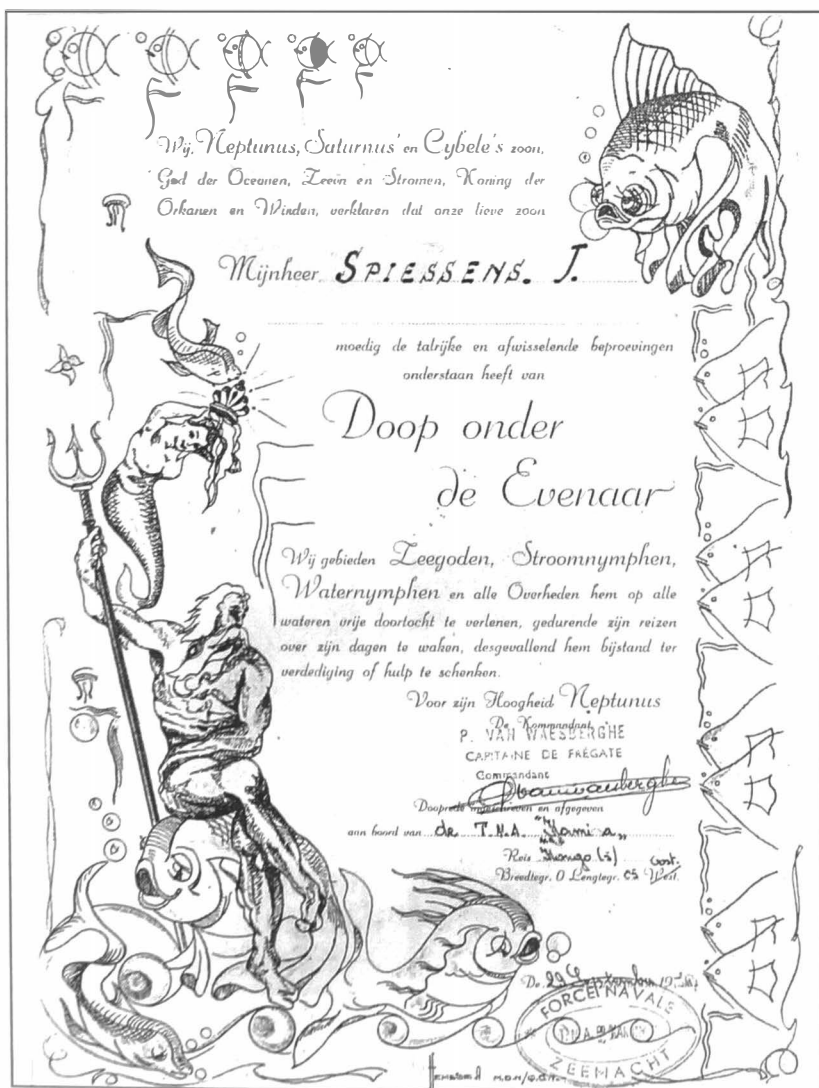 Wij, Neptunus, Saturnus' en Cybele's zoon,
God der Oceanen, Zeeën en Stromen, Koning der
Orkanen en Winden, verklaren dat onze lieve zoon
Mijnheer SPIESSENS. J.
moedig de talrijke en afwisselende beproevingen
onderstaan heeft van
Doop onder
de Evenaar
Wij gebieden Zeegoden, Stroomnymphen,
Waternymphen en alle Overheden hem op alle
wateren vrije doortocht te verlenen, gedurende zijn reizen
over zijn dagen te waken, desgevallend hem bijstand ter
verdediging of hulp te schenken.
Voor zijn Hoogheid Neptunus
De Kommandant
P. VAN WAESBERGHE
CAPITAINE DE FRÉGATE
Commandant
en afgegeven
aan boord van de T.N.A. "Kamina"
Reis Kongo (s)
Oost.
Breedtegr. 0 Lengtegr. 05 West.
De 29 September 19
FORCE NAVALE
ZEEMACHT